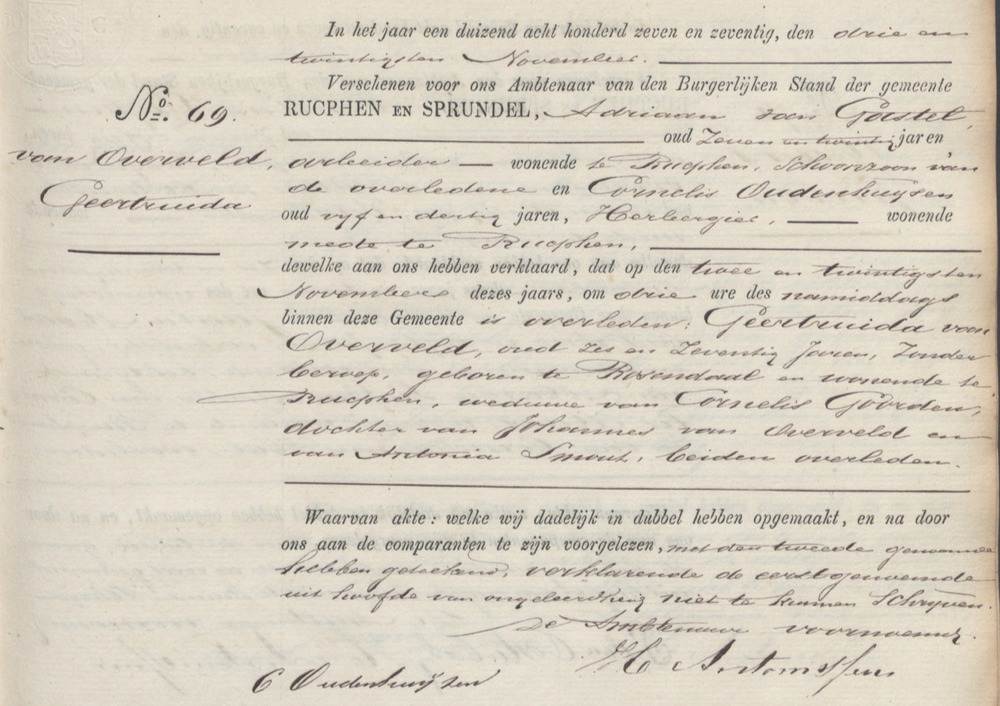 In het jaar een duizend acht honderd zeven en zeventig, den drie en
twintigsten November.
Verschenen voor ons Ambtenaar van den Burgerlijken Stand der gemeente
No. 69.
RUCPHEN EN SPRUNDEL, Adriaan van Gastel,
oud Zeven en twintig jaren
van Overveld,
Geertruida
arbeider — wonende te Rucphen, Schoonzoon van
de overledene en Cornelis Oudenhuijsen
oud vyf en dertig jaren, Herbergier, — wonende
mede te Rucphen,
dewelke aan ons hebben verklaard, dat op den twee en twintigsten
November dezes jaars, om drie ure des namiddags
binnen deze Gemeente is overleden: Geertruida van
Overveld, oud Zes en Zeventig Jaren, Zonder
beroep, geboren te Rosendaal en wonende te
Rucphen, weduwe van Cornelis Goorden,
dochter van Johannes van Overveld en
van Antonia Smout, beiden overleden.
Waarvan akte: welke wij dadelijk in dubbel hebben opgemaakt, en na door
ons aan de comparanten te zijn voorgelezen, met den tweede genoemde
hebben geteekend, verklarende de eerstgenoemde
uit hoofde van ongeleerdheid niet te kunnen Schryven.
De Ambtenaar voornoemd.
C Oudenhuijsen